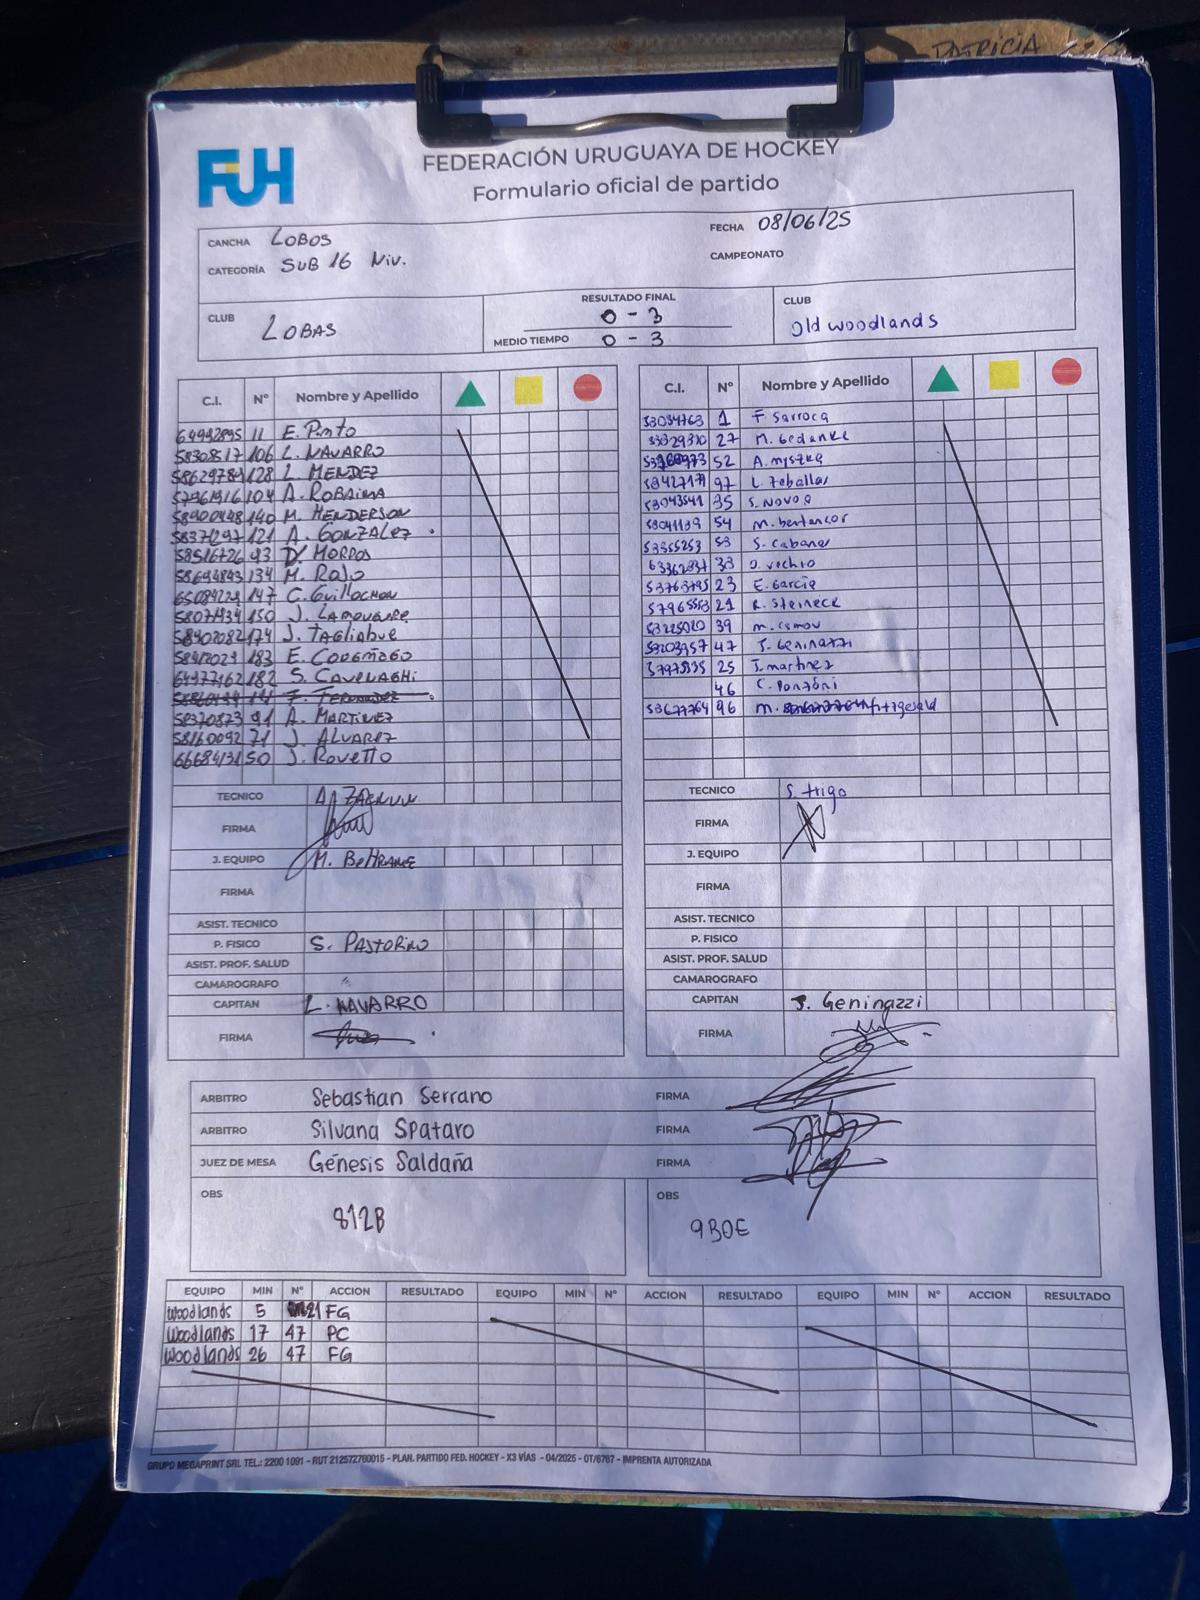 PATRICIA
FUH
FEDERACIÓN URUGUAYA DE HOCKEY
Formulario oficial de partido
CANCHA LOBOS
FECHA 08/06/25
CATEGORÍA SUB 16 Niv.
CAMPEONATO
CLUB LOBAS
RESULTADO FINAL
0 - 3
MEDIO TIEMPO 0 - 3
CLUB
Old woodlands
C.I. Nº Nombre y Apellido
11 E. Pinto
58308517 106 L. NAVARRO
58629789 128 L. MENDEZ
57961916 104 A. ROBAINA
58900448 140 M. HENDERSON
58371297 121 A. GONZALEZ
58516726 93 D. MORROS
58694843 134 M. ROJO
65084229 147 C. Guillochon
58074934 150 J. LAMOUGURE
58902082 174 J. TAGLIABUE
183 E.
64977162 182 S. CAVENAGHI
141 F. FERNANDEZ
58370873 91 A. MARTINEZ
58160092 71 J. ALVAREZ
66684131 50 J. ROVETTO
TECNICO
FIRMA
J. EQUIPO M. BELTRAME
FIRMA
ASIST. TECNICO
P. FISICO S. PASTORINO
ASIST. PROF. SALUD
CAMAROGRAFO
CAPITAN L. NAVARRO
FIRMA
C.I. Nº Nombre y Apellido
53034763 1 F. Sarroca
53329310 27 M. Gedanke
52 A. myszka
97 L. Zeballos
53043541 35 S. Novoa
53041139 54 M. bentancor
53355253 53 S. Cabana
63362837 33 J. Vechio
53763795 23 E. Garcia
21 R. Steineck
53225020 39 m.
53203957 47 J. Geninazzi
25 J. martinez
46 C. Ponzoni
53677764 96 M. fitzgerald
TECNICO S. trigo
FIRMA
J. EQUIPO
FIRMA
ASIST. TECNICO
P. FISICO
ASIST. PROF. SALUD
CAMAROGRAFO
CAPITAN J. Geninazzi
FIRMA
ARBITRO Sebastian Serrano FIRMA
ARBITRO Silvana Spataro FIRMA
JUEZ DE MESA Génesis Saldaña FIRMA
OBS
812B
OBS
9B0E
EQUIPO MIN Nº ACCION RESULTADO EQUIPO MIN Nº ACCION RESULTADO EQUIPO MIN Nº ACCION RESULTADO
Woodlands 5 21 FG
Woodlands 17 47 PC
Woodlands 26 47 FG
GRUPO MEGAPRINT SRL TEL.: 2200 1091 - RUT 212572700015 - PLAN. PARTIDO FED. HOCKEY - X3 VÍAS - 04/2025 - OT/6767 - IMPRENTA AUTORIZADA